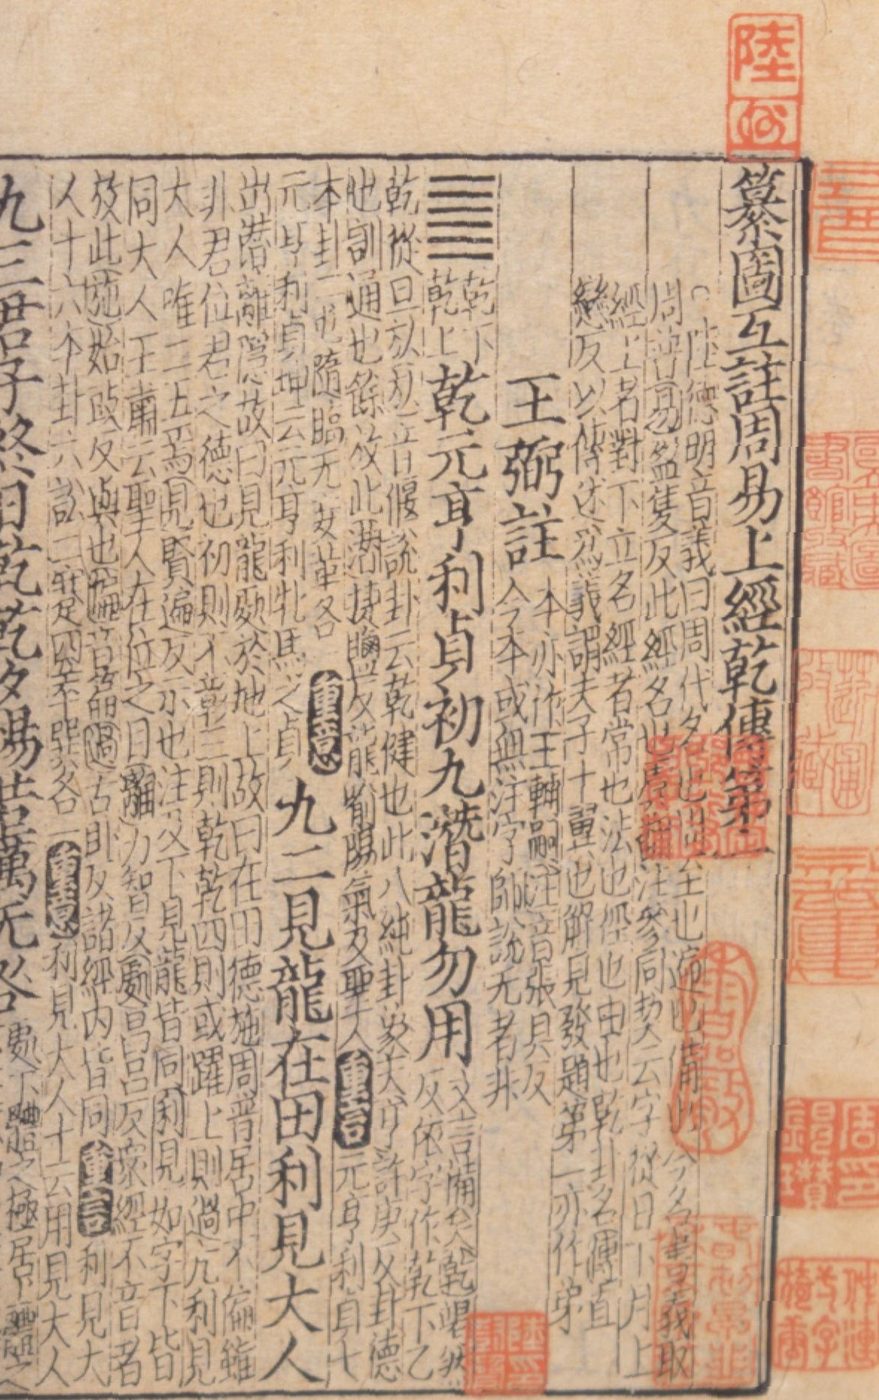 纂圖互註周易上經乾傳第一
陸德明音義曰周代名也周至也遍也備也今名書義取
周普易盈隻反此經名也虞翻注參同契云字從日下月上
經上者對下立名經者常也法也徑也由也乾卦名傳直
戀反以傳述爲義謂夫子十翼也解見發題第一亦作弟
王弼註
本亦作王輔嗣注音張具反
今本或無注字師說无者非
乾下
乾上
乾元亨利貞初九潛龍勿用
文言備矣乾竭然
反依字作乾下乙
乾從旦㫃㫃音偃說卦云乾健也此八純卦象天亨許庚反卦德
也訓通也餘放此潛捷鹽反龍喻陽氣及聖人
重言
元亨利貞七
本卦二屯隨臨无妄革各一
重意
元亨利貞坤云元亨利牝馬之貞
九二見龍在田利見大人
出潛離隱故曰見龍處於地上故曰在田德施周普居中不偏雖
非君位君之德也初則不彰三則乾乾四則或躍上則過亢利見
大人唯二五焉見賢遍反示也注及下見龍皆同利見如字下皆
同大人王肅云聖人在位之目離力智反處昌呂反衆經不音者
放此施始豉反與也徧音遍過古臥反諸經内皆同
重言
利見大
人十六本卦六訟二蹇四萃巽各一
重意
利見大人十云用見大人
九三君子終日乾乾夕惕若厲无咎
處下體之極居上體之